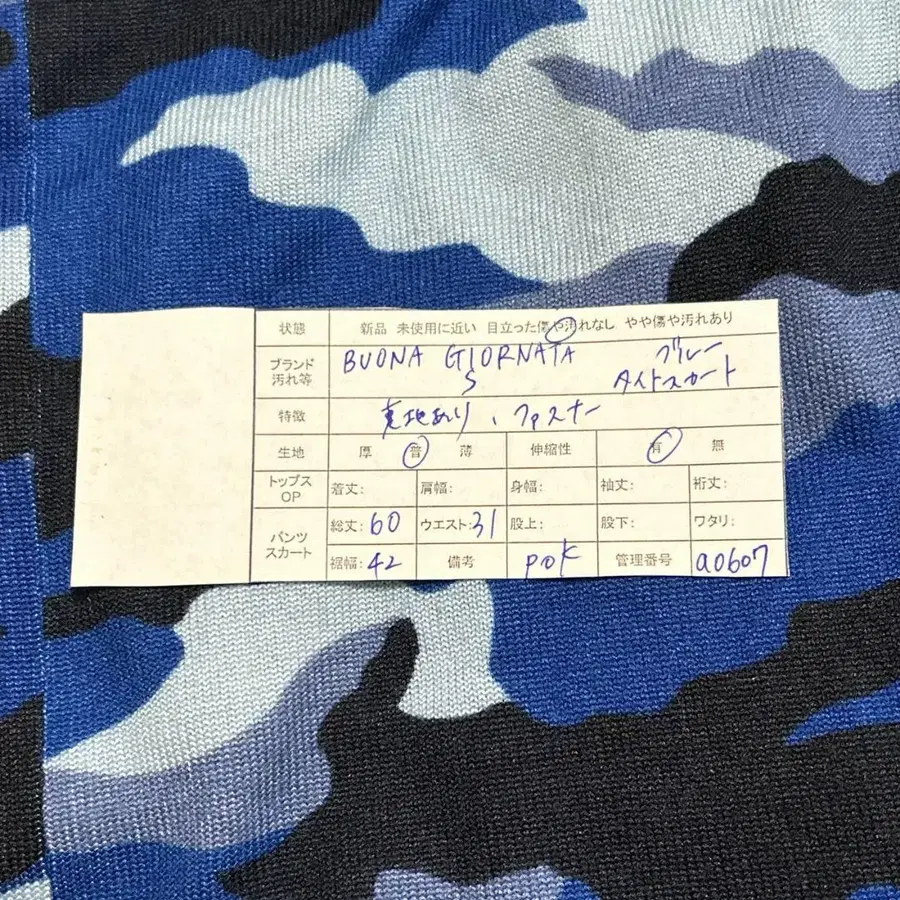 状態 新品 未使用に近い 目立った傷や汚れなし やや傷や汚れあり
ブランド 汚れ等 BUONA GIORNATA ブルー
S タイトスカート
特徴 裏地あり、ファスナー
生地 厚 普 薄 伸縮性 有 無
トップス OP 着丈: 肩幅: 身幅: 袖丈: 裄丈:
パンツ スカート 総丈: 60 ウエスト: 31 股上: 股下: ワタリ:
裾幅: 42 備考 POK 管理番号 a0607